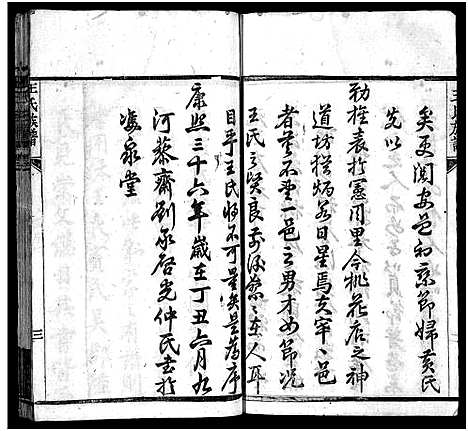 王氏族譜
矣更閱安邑和京節婦黃氏
先以
勅旌表於憲用里今桃花店之神
道坊猶炳若日星焉夫宰宰邑
者莫不重一邑之男才女節況
王氏之賢良前後纍纍在人耳
目乎王氏將不可量矣是為序
康熙三十六年歲在丁丑六月九
河蔡齋劉承啓光仲氏書於
凌泉堂
王氏族譜
三